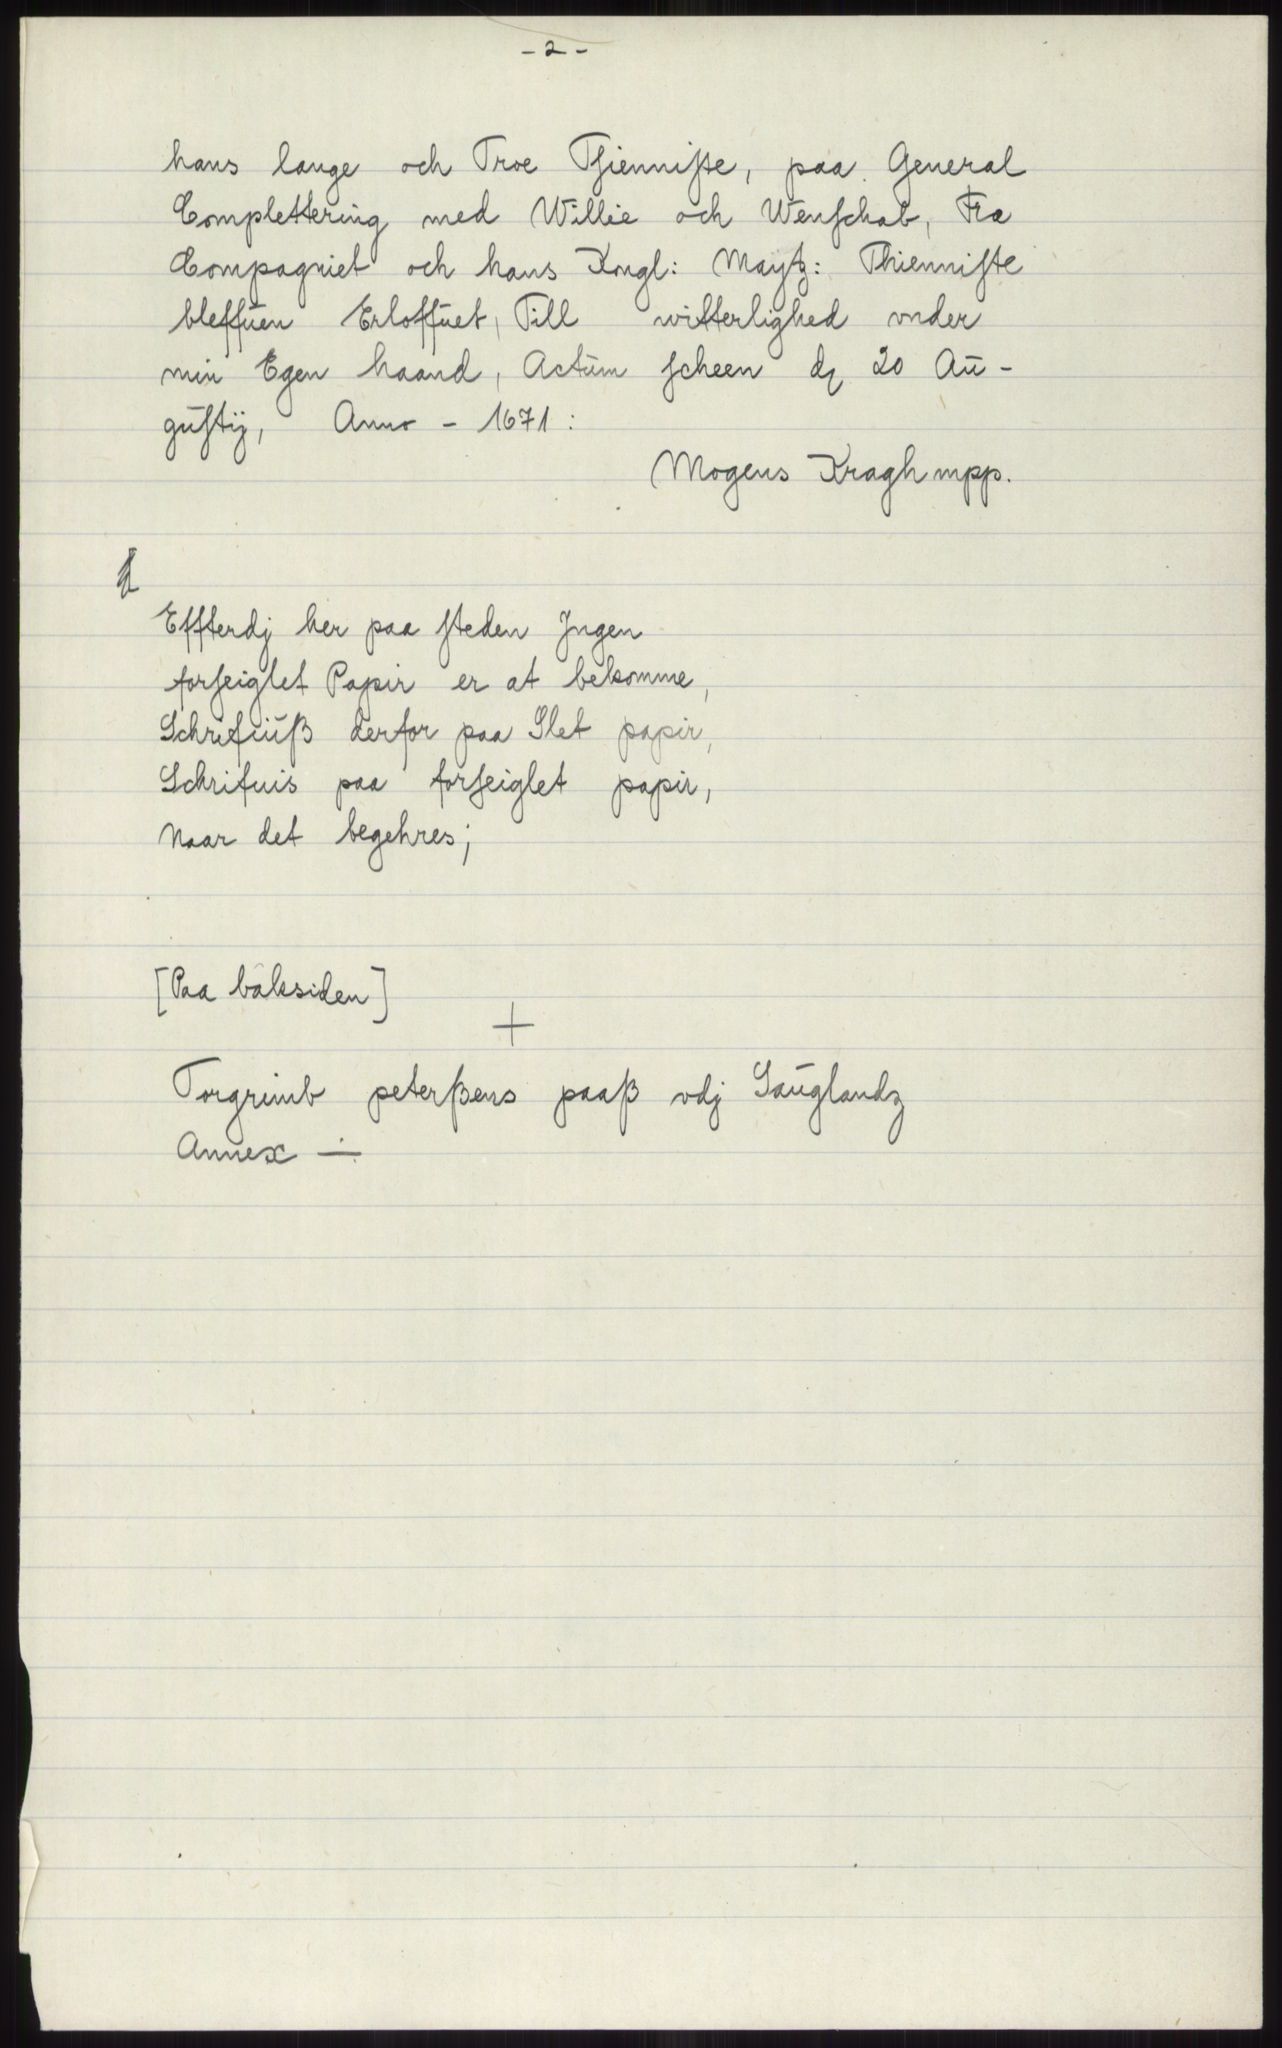 - 2 -
hans lange och Troe Thienniste, paa General
Complettering med Willie och Wenschab, Fra
Compagniet och hans Kongl: Maytz: Thienniste
bleffuen Erloffuet, Till witterlighed vnder
min Egen haand, Actum scheen dz 20 Au-
gustij, Anno - 1671:
Mogens Kragh mpp.
Effterdj her paa steden Jngen
forseiglet Papir er at bekomme,
Schrifuuß derfor paa Slet papir,
Schrifuis paa forseiglet papir,
naar det begehres;
[Paa baksiden]
+
Torgrimb peterßens paaß vdj Sauglandz
Annex ÷